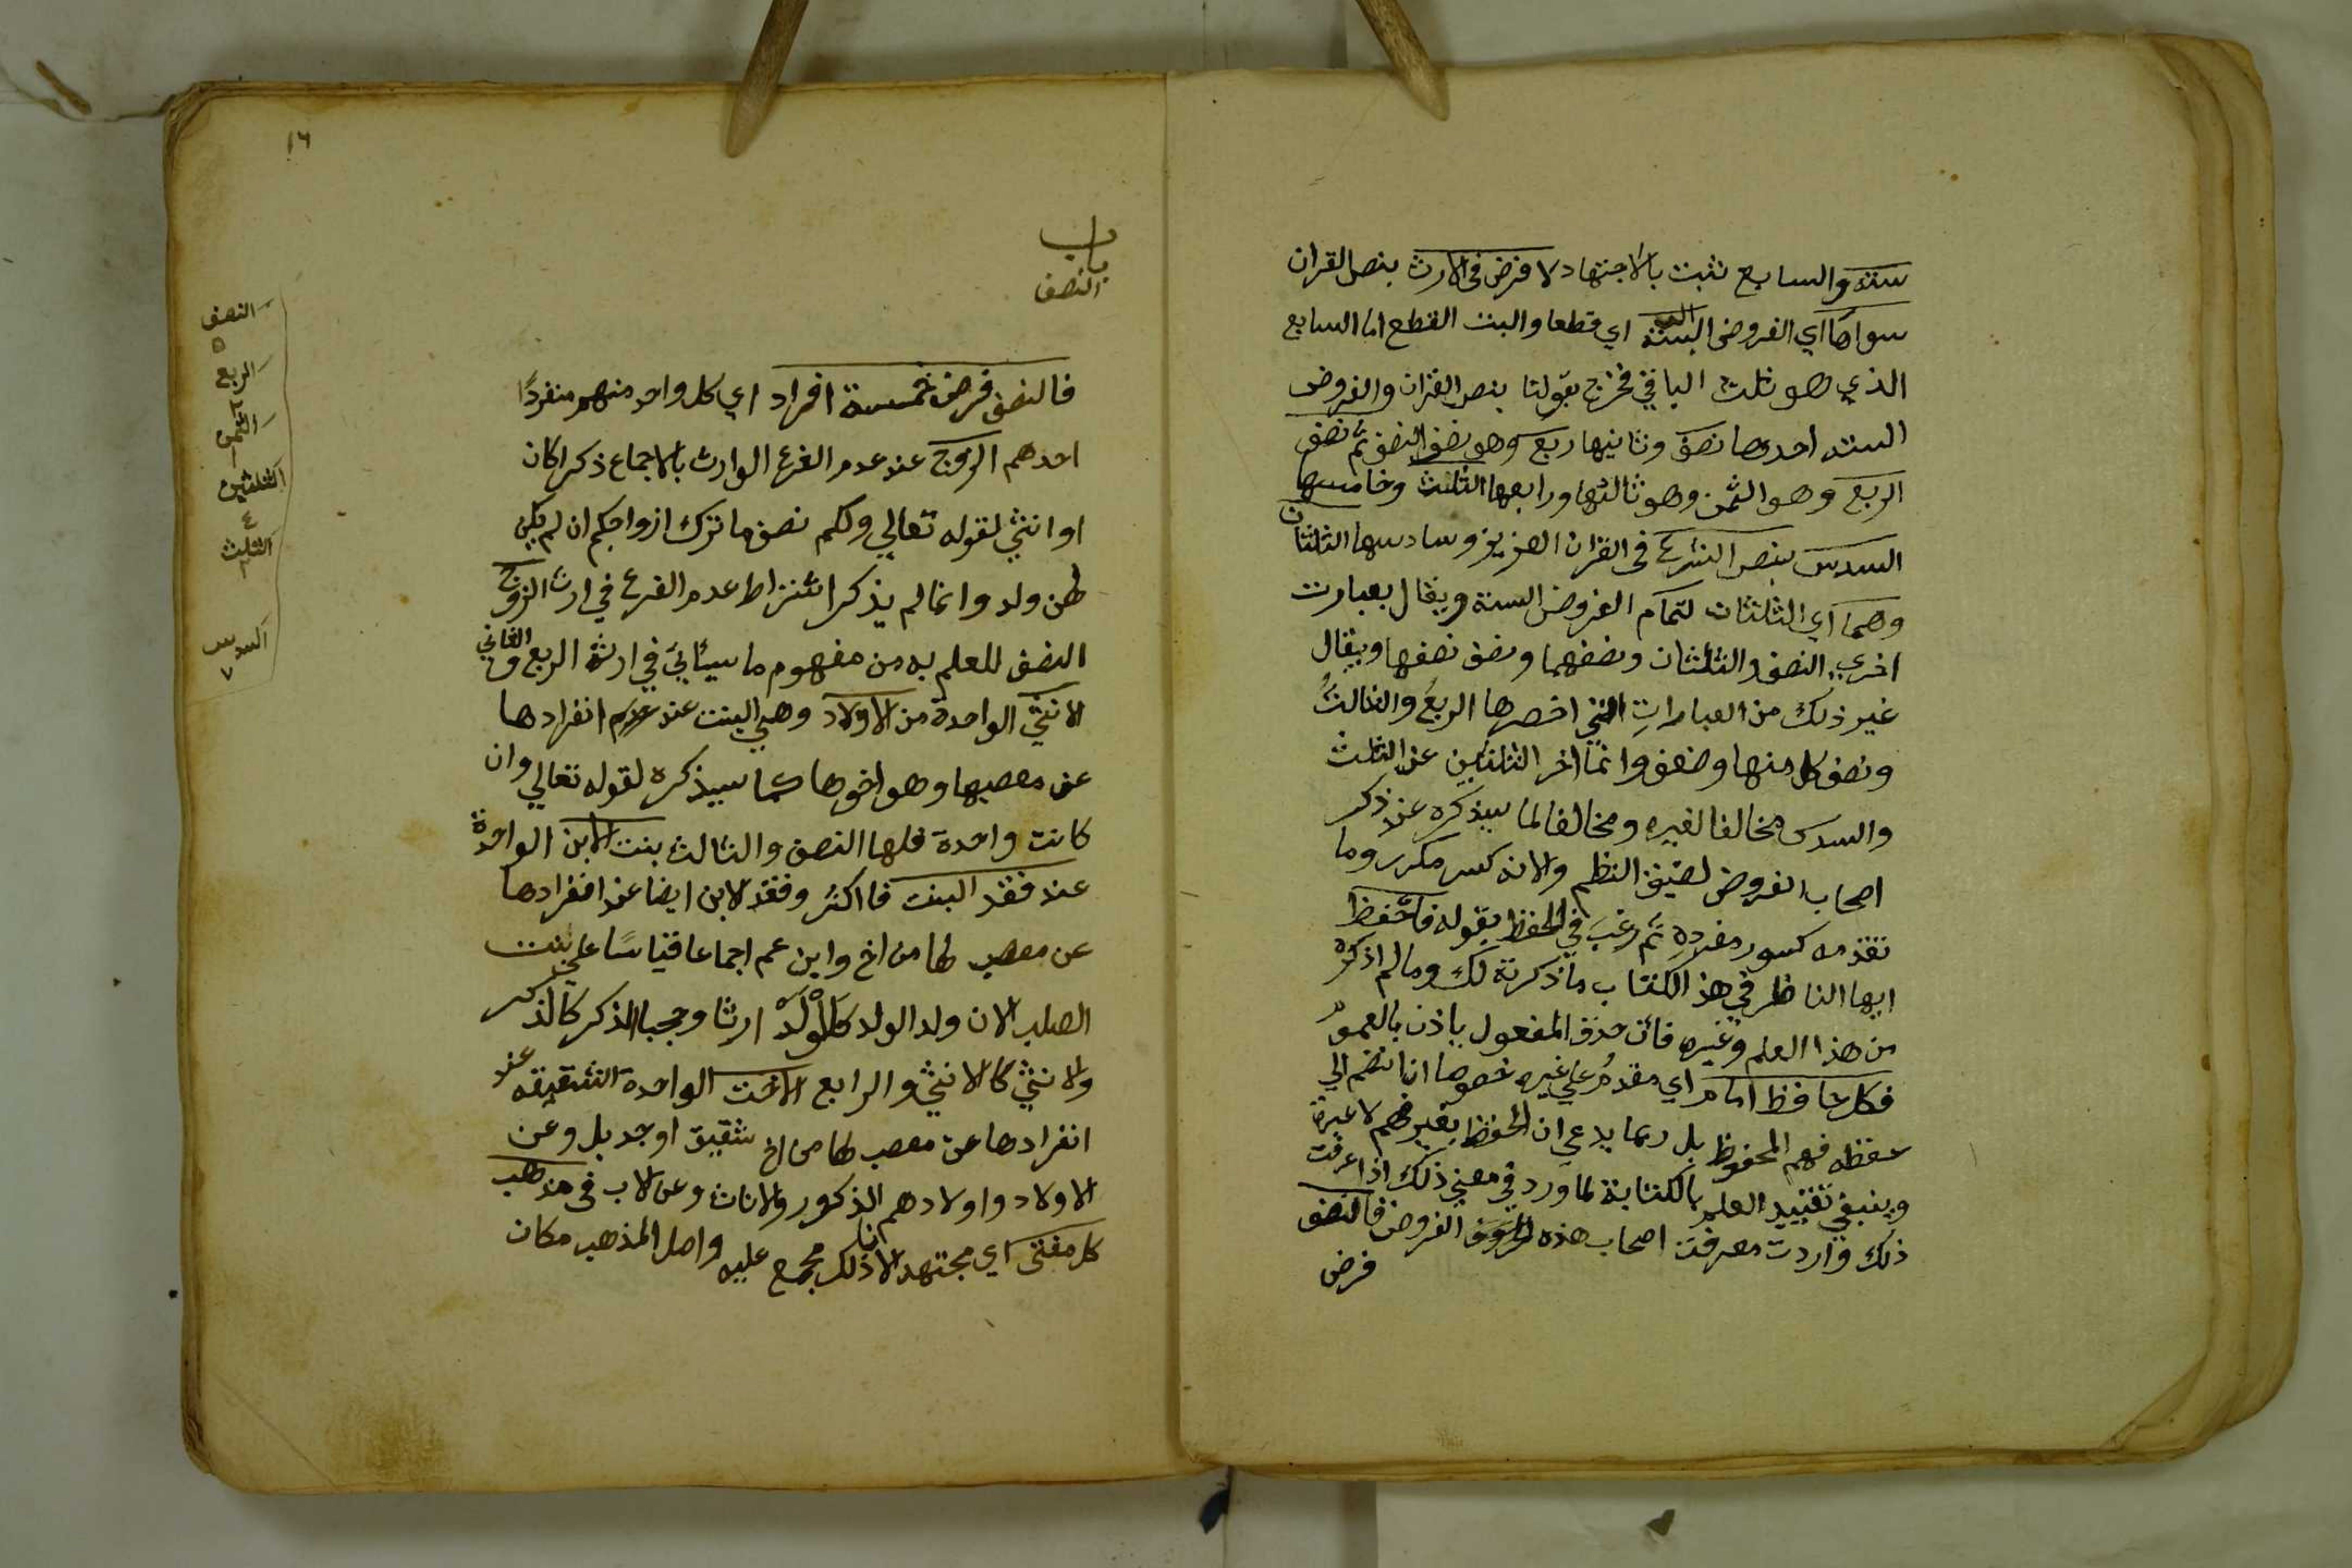 ستة والسابع ثبت بالاجتهاد لا فرض فى الارث بنص القران
سواها اي الفروض الستة البتة اي قطعا والبت القطع اما السابع
الذي هو ثلث الباقي فخرج بقولنا بنص القران والفروض
الستة احدها نصف وثانيها ربع وهو نصف النصف ثم نصف
الربع وهو الثمن وهو ثالثها ورابعها الثلث وخامسها
السدس بنص الشرع فى القران العزيز وسادسها الثلثان
وهما اي الثلثان لتمام الفروض الستة ويقال بعبارت
اخري النصف والثلثان ونصفهما ونصف نصفهما ويقال
غير ذلك من العبارات التي اخصرها الربع والثالث
ونصف كل منها وضعف وانما اخر الثلثين عن الثلث
والسدس مخالفا لغيره ومخالفا لما سيذكره عند ذكر
اصحاب الفروض لضيق النظم ولانه كسر مكرر وما
تقدمه كسور مفرده ثم رغب في الحفظ بقوله فاحفظ
ايها الناظر في هذ الكتاب ما ذكرته لك وما لم اذكره
من هذا العلم وغيره فان حذف المفعول ياذن بالعموم
فكل حافظ امام اي مقدم علي غيره خصوصا ان انضم الي
حفظه فهم المحفوظ بل ربما يدعي ان الحفظ بغير فهم لا عبرة
وينبغي تقييد العلم بالكتابة لما ورد في معني ذلك اذا عرفت
ذلك واردت معرفت اصحاب هذه الفروض فالنصف
فرض
١٦
باب
النصف
فالنصف فرض خمسة افراد اي كل واحد منهم منفردًا
احدهم الزوج عند عدم الفرع الوارث بالاجماع ذكرا كان
او انثي لقوله تعالي ولكم نصف ما ترك ازواجكم ان لم يكن
لهن ولد وانما لم يذكر اشتراط عدم الفرع في ارث الزوج
النصف للعلم به من مفهوم ما سيأتي في ارثه الربع والثاني
الانثي الواحدة من الاولاد وهي البنت عند عدم انفرادها
عن معصبها وهو اخوها كما سيذكره لقوله تعالي وان
كانت واحدة فلها النصف والثالث بنت الابن الواحدة
عند فقد البنت فاكثر وفقد لابن ايضا عند انفرادها
عن معصب لها من اخ وابن عم اجماعا قياسًا علي بنت
الصلب لان ولد الولد كالولد ارثا وحجبا الذكر كالذكر
والانثي كالانثي والرابع الاخت الواحدة الشقيقه عند
انفرادها عن معصب لها من اخ شقيق اوجد بل وعن
الاولاد واولادهم الذكور والاناث وعن الاب فى مذهب
كل مفتى اي مجتهد لان ذلك مجمع عليه واصل المذهب مكان
النصف
٥
الربع
٢
الثمن
١
الثلثين
٤
الثلث
٢
السدس
٧